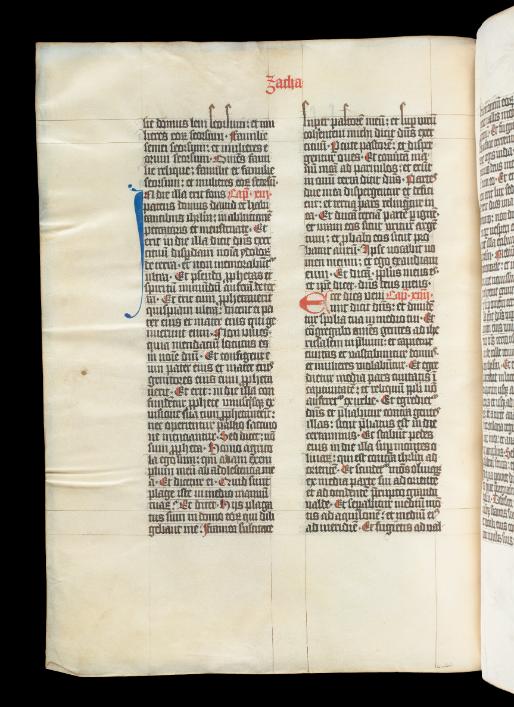 Zacha
sie domus leui seorsum: et mu
lieres eoꝝ seorsum. Familie
semei seorsum: et mulieres e
orum seorsum. Om̄es fami
lie relique: familie et familie
seorsum: et mulieres eoꝝ seorsū.
In die illa erit fons Cap. xiii.
patens domus dauid et habi
erit in die illa dicit dn̄s exer
cituum: disperdam noīa ydoloꝝ
de terra: et non memorabunt᷑
vltra. Et pseudo ꝓphetas et
spiritū immundū auferā de ter
ra. Et erit cum ꝓphetauerit
quispiam vltra: dicent ei pa
ter eius et mater eius qui ge
nuerunt eum. Non viues:
quia mendaciū locutus es
in noīe dn̄i. Et configent e
um pater eius et mater eius
genitores eius cum ꝓpheta
uerit. Et erit: in die illa con
fundent᷑ ꝓphete vnusquisqȝ ex
visione sua cum ꝓphetauerit:
nec operientur pallio saccino
vt mentiantur. Sed dicet: nō
sum ꝓpheta. Homo agrico
la ego sum: qm̄ adam exem
plum meū ab adolescentia me
a. Et dicetur ei. Quid sunt
plage iste in medio manuū
tuaꝝ. Et dicet. Hijs plaga
tus sum in domo eoꝝ qui dili
gebant me. Framea suscitare
super pastorē meū: et sup virū
coherentem michi dicit dn̄s exer
cituū. Percute pastorē: et disper
gentur oues. Et conuertā ma
nū meā ad paruulos: et erūt
in omī terra dicit dn̄s. Partes
due in ea dispergentur et defici
ent: et tercia pars relinquet᷑ in
ea. Et ducā terciā partē ꝑ ignē:
et uram eos sicut vritur argē
tum: et ꝓbabo eos sicut pro
batur aurū. Ipse vocabit no
men meum: et ego exaudiam
eum. Et dicā: pplus meus es:
et ip̄e dicet: dn̄s deus meus.
Ecce dies veni Cap. xiiii.
unt dicit dn̄s: et diuidē
tur spolia tua in medio tui. Et
cōgregabo omēs gentes ad ihe
rusalem in prelium: et capietur
ciuitas et vastabuntur domus:
et mulieres violabūtur. Et egre
dietur media pars ciuitatis ī
captiuitatē: et reliquū ppli nō
auferet᷑ ex vrbe. Et egrediet᷑
dn̄s et preliabitur contra gentes
illas: sicut preliatus est in die
certaminis. Et stabūt pedes
eius in die illa super montem o
liuaꝝ: qui est contra ihrlm ad
orientē. Et scindet᷑ mōs oliuaꝝ
ex media parte sui ad orientē
et ad occidentē prerupto grandi
valde. Et separabit᷑ mediū mon
tis ad aquilonē: et medium ei᷒
ad meridiē. Et fugietis ad val